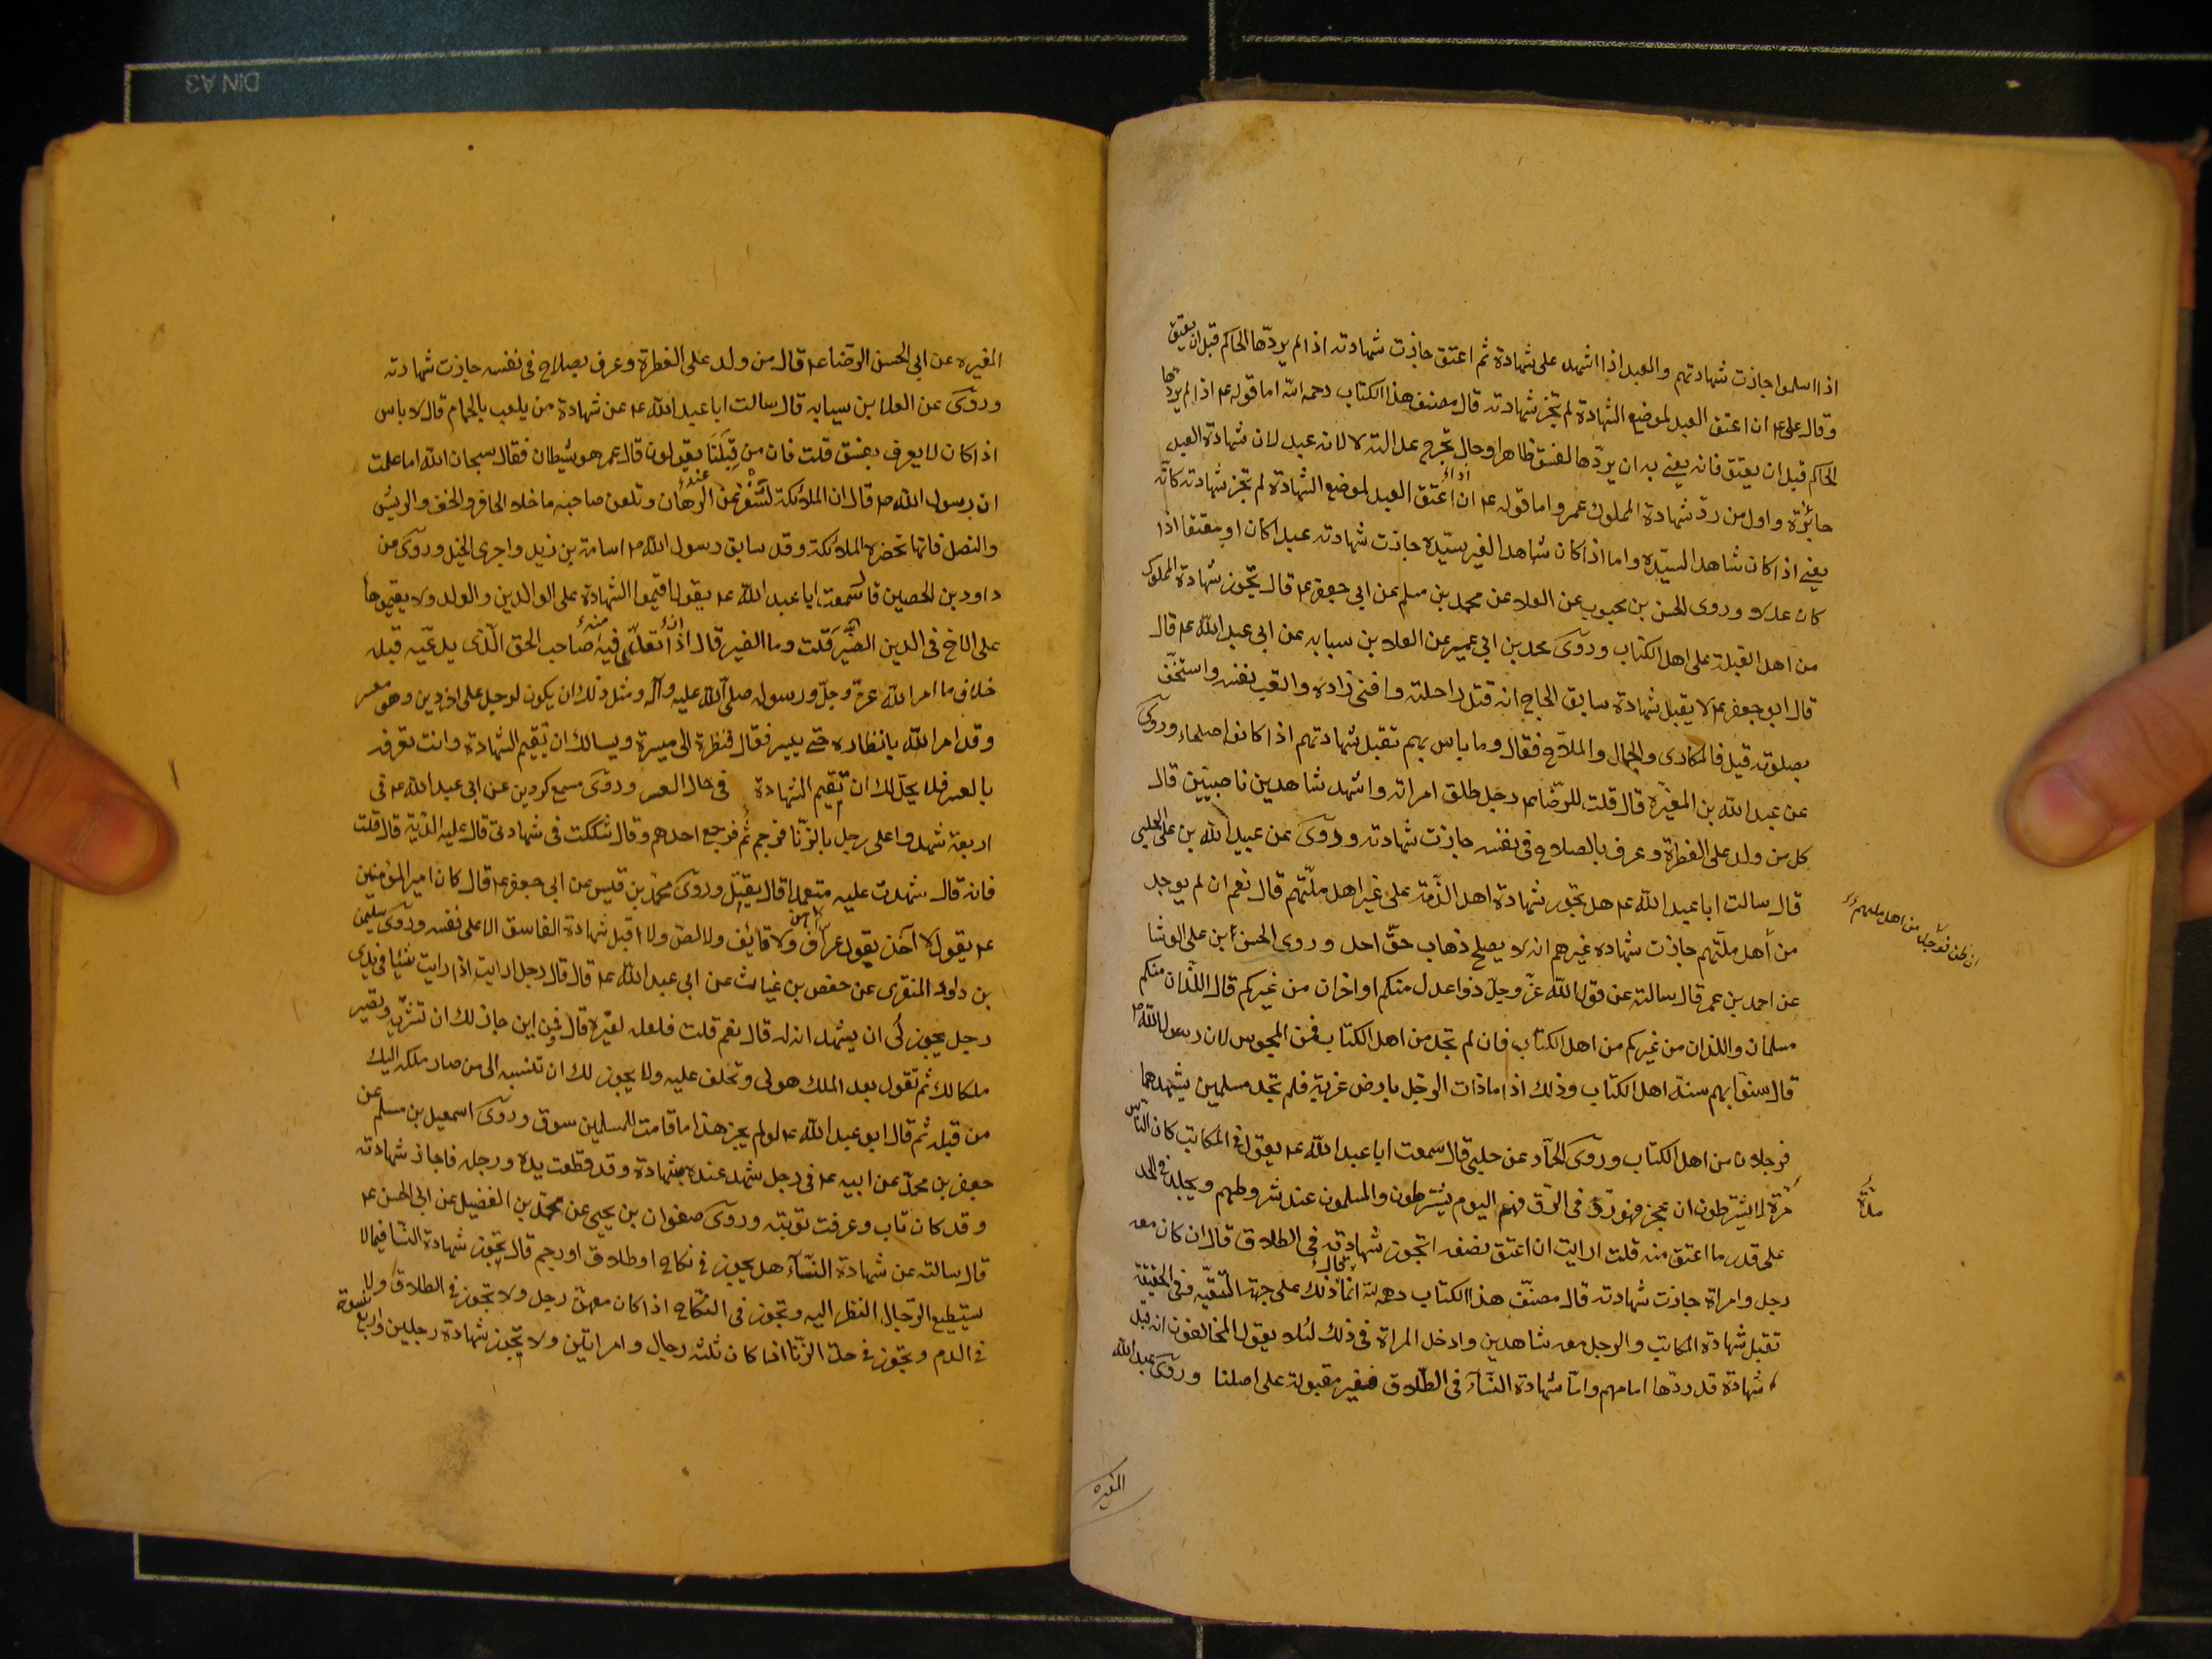 اذا اسلموا جازت شهادتهم والعبد اذا اشهد على شهادة ثم اعتق جازت شهادته اذا لم يردّها الحاكم قبل ان يعتق
وقال على ع ان اعتق العبد لموضع الشهادة لم تجز شهادته قال مصنف هذا الكتاب رحمه الله اما قوله ع اذا لم يردها
الحاكم قبل ان يعتق فانه يعنى به ان يردّها لفسق ظاهر او حال تجرح عدالته لا لانه عبد لان شهادة العبد
جائزة واول من ردّ شهادة المملوك عمر واما قوله ع ان اعتق العبد لموضع الشهادة لم تجز شهادته كانّه
يعنى اذا كان شاهدا لسيّده واما اذا كان شاهدا لغير سيّده جازت شهادته عبدا كان او معتقا اذا
كان عدلا وروى الحسن بن محبوب عن العلا عن محمد بن مسلم عن ابى جعفر ع قال تجوز شهادة المملوك
من اهل القبلة على اهل الكتاب وروى محمد بن ابى عمير عن العلا بن سيابه عن ابى عبد الله ع قال
قال ابو جعفر ع لا يقبل شهادة سابق الحاج انه قتل راحلته وافنى زاده واتعب نفسه واستخفّ
بصلوته قيل فالمكارى والجمال والملاّح فقال وما باس بهم تقبل شهادتهم اذا كانوا صلحاء وروى
عن عبد الله بن المغيرة قال قلت للرضا ع رجل طلق امراته واشهد شاهدين ناصبيّين قال
كل من ولد على الفطرة وعرف بالصلاح فى نفسه جازت شهادته وروى عن عبيد الله بن على الحلبى
قال سالت ابا عبد الله ع هل تجوز شهادة اهل الذّمة على غير اهل ملّتهم قال نعم ان لم يوجد
من اهل ملّتهم جازت شهادة غيرهم انه لا يصلح ذهاب حقّ احد وروى الحسن بن على الوشا
عن احمد بن عمر قال سالته عن قول الله عزّ وجلّ ذوا عدل منكم او اخران من غيركم قال اللذان منكم
مسلمان واللذان من غيركم من اهل الكتاب فان لم تجد من اهل الكتاب فمن المجوس لان رسول الله ص
قال سنّوا بهم سنة اهل الكتاب وذلك اذا مات الرجل بارض غربة فلم تجد مسلمين يشهدهما
فرجلان من اهل الكتاب وروى الحمّاد عن حلبى قال سمعت ابا عبد الله ع يقول فى المكاتب كان النّاس
مرّة لا يشترطون ان عجز فهو ردّ فى الرّق فهم اليوم يشترطون والمسلمون عند شروطهم ويجلد فى الحد
مدّة
على قدر ما اعتق منه قلت ارايت ان اعتق نصفه اتجوز شهادته فى الطلاق قال ان كان معه
رجل وامراة جازت شهادته قال مصنّف هذا الكتاب رحمه الله انما ذلك على جهة التقيّه وفى الحقيقة
تقبل شهادة المكاتب والرجل معه شاهدين وادخل المراة فى ذلك لئلا يقول المخالفون انه قبل
شهادة قد ردّها امامهم وامّا شهادة النّساء فى الطّلاق فغير مقبولة على اصلنا وروى عبد الله
المغيره
المغيره عن ابى الحسن الرّضا ع قال من ولد على الفطرة وعرف بصلاح فى نفسه جازت شهادته
وروى عن العلا بن سيابه قال سالت ابا عبد الله ع عن شهادة من يلعب بالحمام قال لا باس
اذا كان لا يعرف بفسق قلت فان من قِبَلنا يقولون قال عمر هو شيطان فقال سبحان الله اما علمت
ان رسول الله ص قال ان الملائكة لتنفر عند الرهان وتلعن صاحبه ما خلا الحافر والخف والريش
والنصل فانها تحضره الملائكة وقد سابق رسول الله ص اسامة بن زيد واجرى الخيل وروى من
داود بن الحصين قال سمعت ابا عبد الله ع يقول اقيموا الشهادة على الوالدين والولد ولا يقيموها
على الاخ فى الدين الضّير قلت وما الضير قال اذا تعدّى فيه صاحب الحق الّذى يدعيّه قبله
خلاف ما امر الله عزّ وجلّ ورسوله صلى الله عليه وآله ومثل ذلك ان يكون لرجل على اخر دين وهو معسر
وقد امر الله بانظاره حتى ييسر فقال فنظرة الى ميسرة ويسالك ان تقيم الشهادة وانت تعرفه
بالعسر فلا يحلّ لك ان تقيم الشهادة فى حال العسر وروى مسمع كردين عن ابى عبد الله ع فى
اربعة شهدوا على رجل بالزّنا فرجم ثم رجع احدهم وقال شككت فى شهادتى قال عليه الدّية قال قلت
فانه قال شهدت عليه متعمدا قال يقتل وروى محمد بن قيس عن ابى جعفر ع قال كان امير المؤمنين
ع يقول لا اخذ بقول عراف ولا قائف ولا لصّ ولا اقبل شهادة الفاسق الا على نفسه وروى سليمن
بن داود المنقرى عن حفص بن غياث عن ابى عبد الله ع قال قال رجل ارايت اذا رايت شيئا فى يدى
رجل يجوز لى ان يشهد انه له قال نعم قلت فلعله لغيره قال فمن اين جاز لك ان تشتريه ويصير
ملكا لك ثم تقول بعد الملك هو لى وتحلف عليه ولا يجوز لك ان تنسبه الى من صار ملكه اليك
من قبله ثم قال ابو عبد الله ع لو لم يجز هذا ما قامت للمسلمين سوق وروى اسمعيل بن مسلم عن
جعفر بن محمد عن ابيه ع فى رجل شهد عنده بشهادة وقد قطعت يده ورجله فاجاز شهادته
وقد كان تاب وعرفت توبته وروى صفوان بن يحيى عن محمد بن الفضيل عن ابى الحسن ع
قال سالته عن شهادة النّساء هل يجوز فى نكاح او طلاق او رجم قال تجوز شهادة النّسا فيما لا
يستطيع الرّجال النظر اليه وتجوز فى النّكاح اذا كان معهنّ رجل ولا تجوز فى الطلاق ولا
فى الدم وتجوز فى حدّ الزنّا اذا كان ثلثه رجال وامراتين ولا تجوز شهادة رجلين واربع نسوة